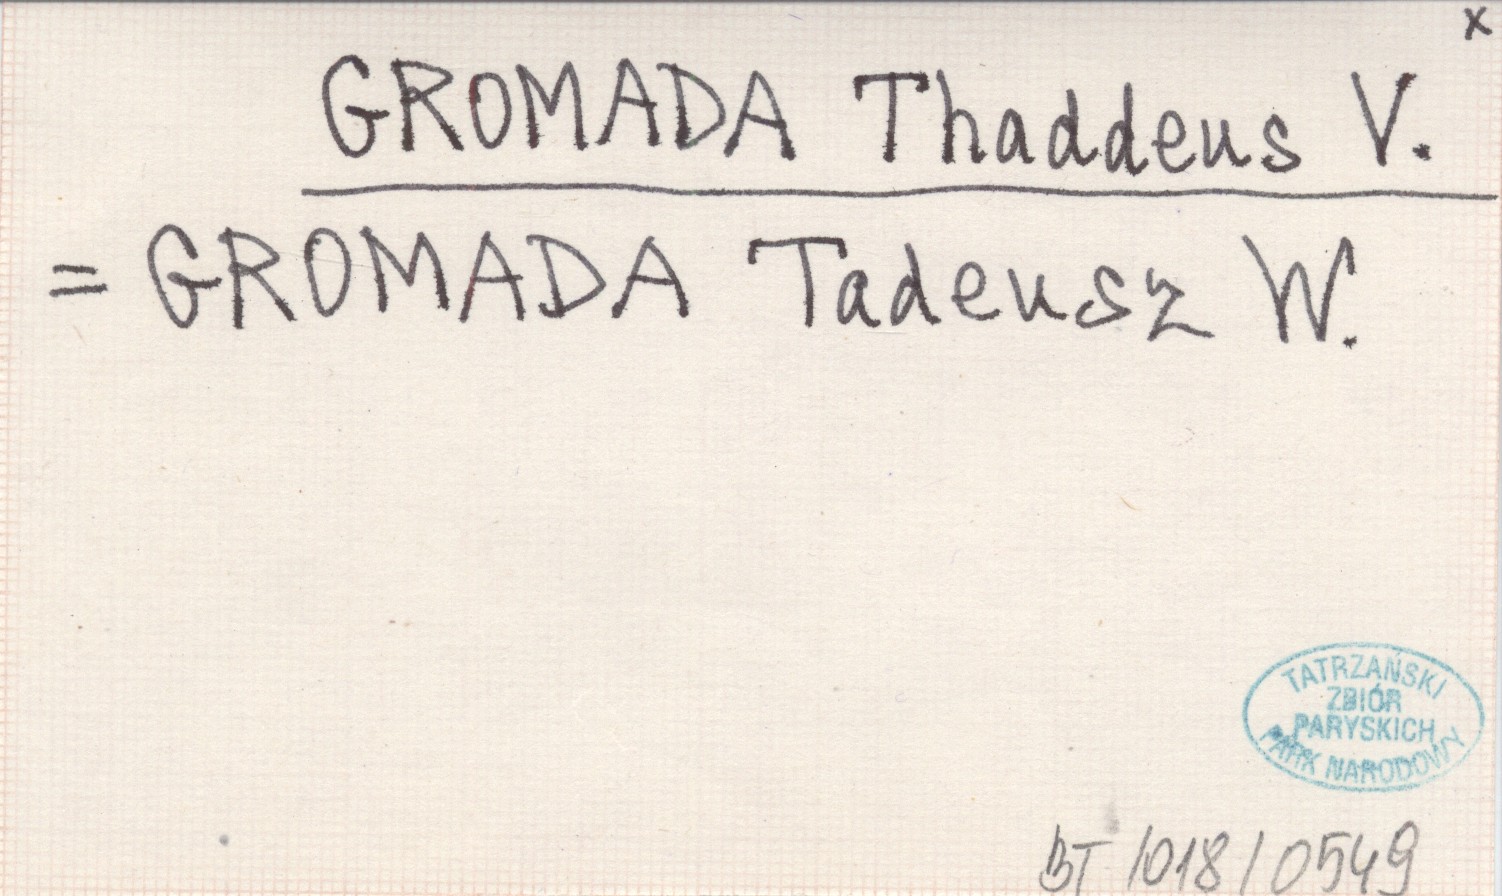 x
GROMADA Thaddeus V.
= GROMADA Tadeusz W.
TATRZAŃSKI
ZBIÓR
PARYSKICH
PARK NARODOWY
BT /018 / 0549